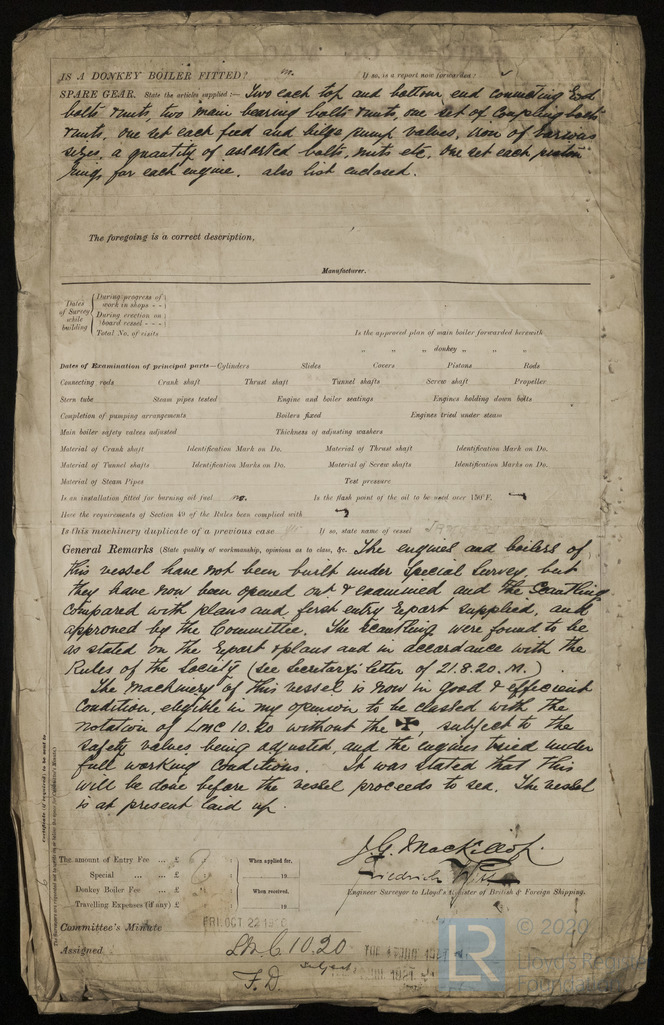 IS A DONKEY BOILER FITTED? no. If so, is a report now forwarded?
SPARE GEAR. State the articles supplied:— Two each top and bottom end connecting Rod
bolts & nuts, two main bearing bolts & nuts, one set of coupling bolts
& nuts, one set each feed and bilge pump valves, iron of various
sizes, a quantity of assorted bolts, nuts etc. One set each piston
rings for each engine. also list enclosed.
The foregoing is a correct description,
Manufacturer.
Dates of Survey while building
During progress of work in shops - -
During erection on board vessel - - -
Total No. of visits
Is the approved plan of main boiler forwarded herewith
" " " donkey " " "
Dates of Examination of principal parts—Cylinders Slides Covers Pistons Rods
Connecting rods Crank shaft Thrust shaft Tunnel shafts Screw shaft Propeller
Stern tube Steam pipes tested Engine and boiler seatings Engines holding down bolts
Completion of pumping arrangements Boilers fixed Engines tried under steam
Main boiler safety valves adjusted Thickness of adjusting washers
Material of Crank shaft Identification Mark on Do. Material of Thrust shaft Identification Mark on Do.
Material of Tunnel shafts Identification Marks on Do. Material of Screw shafts Identification Marks on Do.
Material of Steam Pipes Test pressure
Is an installation fitted for burning oil fuel no. Is the flash point of the oil to be used over 150°F.
Have the requirements of Section 49 of the Rules been complied with
Is this machinery duplicate of a previous case If so, state name of vessel
General Remarks (State quality of workmanship, opinions as to class, &c. The engines and boilers of
this vessel have not been built under Special Survey, but
they have now been opened out & examined and the Scantling
compared with plans and first entry Report supplied, and
approved by the Committee. The scantling were found to be
as stated on the Report & plans and in accordance with the
Rules of the Society (see Secretary's letter of 21.8.20. M.)
The machinery of this vessel is now in good & efficient
condition, eligible in my opinion to be classed with the
notation of LMC 10.20 without the ✠, subject to the
safety valves being adjusted, and the engines tried under
full working conditions. It was stated that this
will be done before the vessel proceeds to sea. The vessel
is at present laid up.
Certificate (if required) to be sent to
The amount of Entry Fee ... £ : : When applied for,
Special ... ... £ : : 19
Donkey Boiler Fee ... £ : : When received,
Travelling Expenses (if any) £ : : 19
J. G. Mackillop.
Friedrich
Engineer Surveyor to Lloyd's Register of British & Foreign Shipping.
Committee's Minute FRI. OCT 22 1920
Assigned LMC 10.20
subject
F.D.
LR
© 2020
Lloyd's Register
Foundation